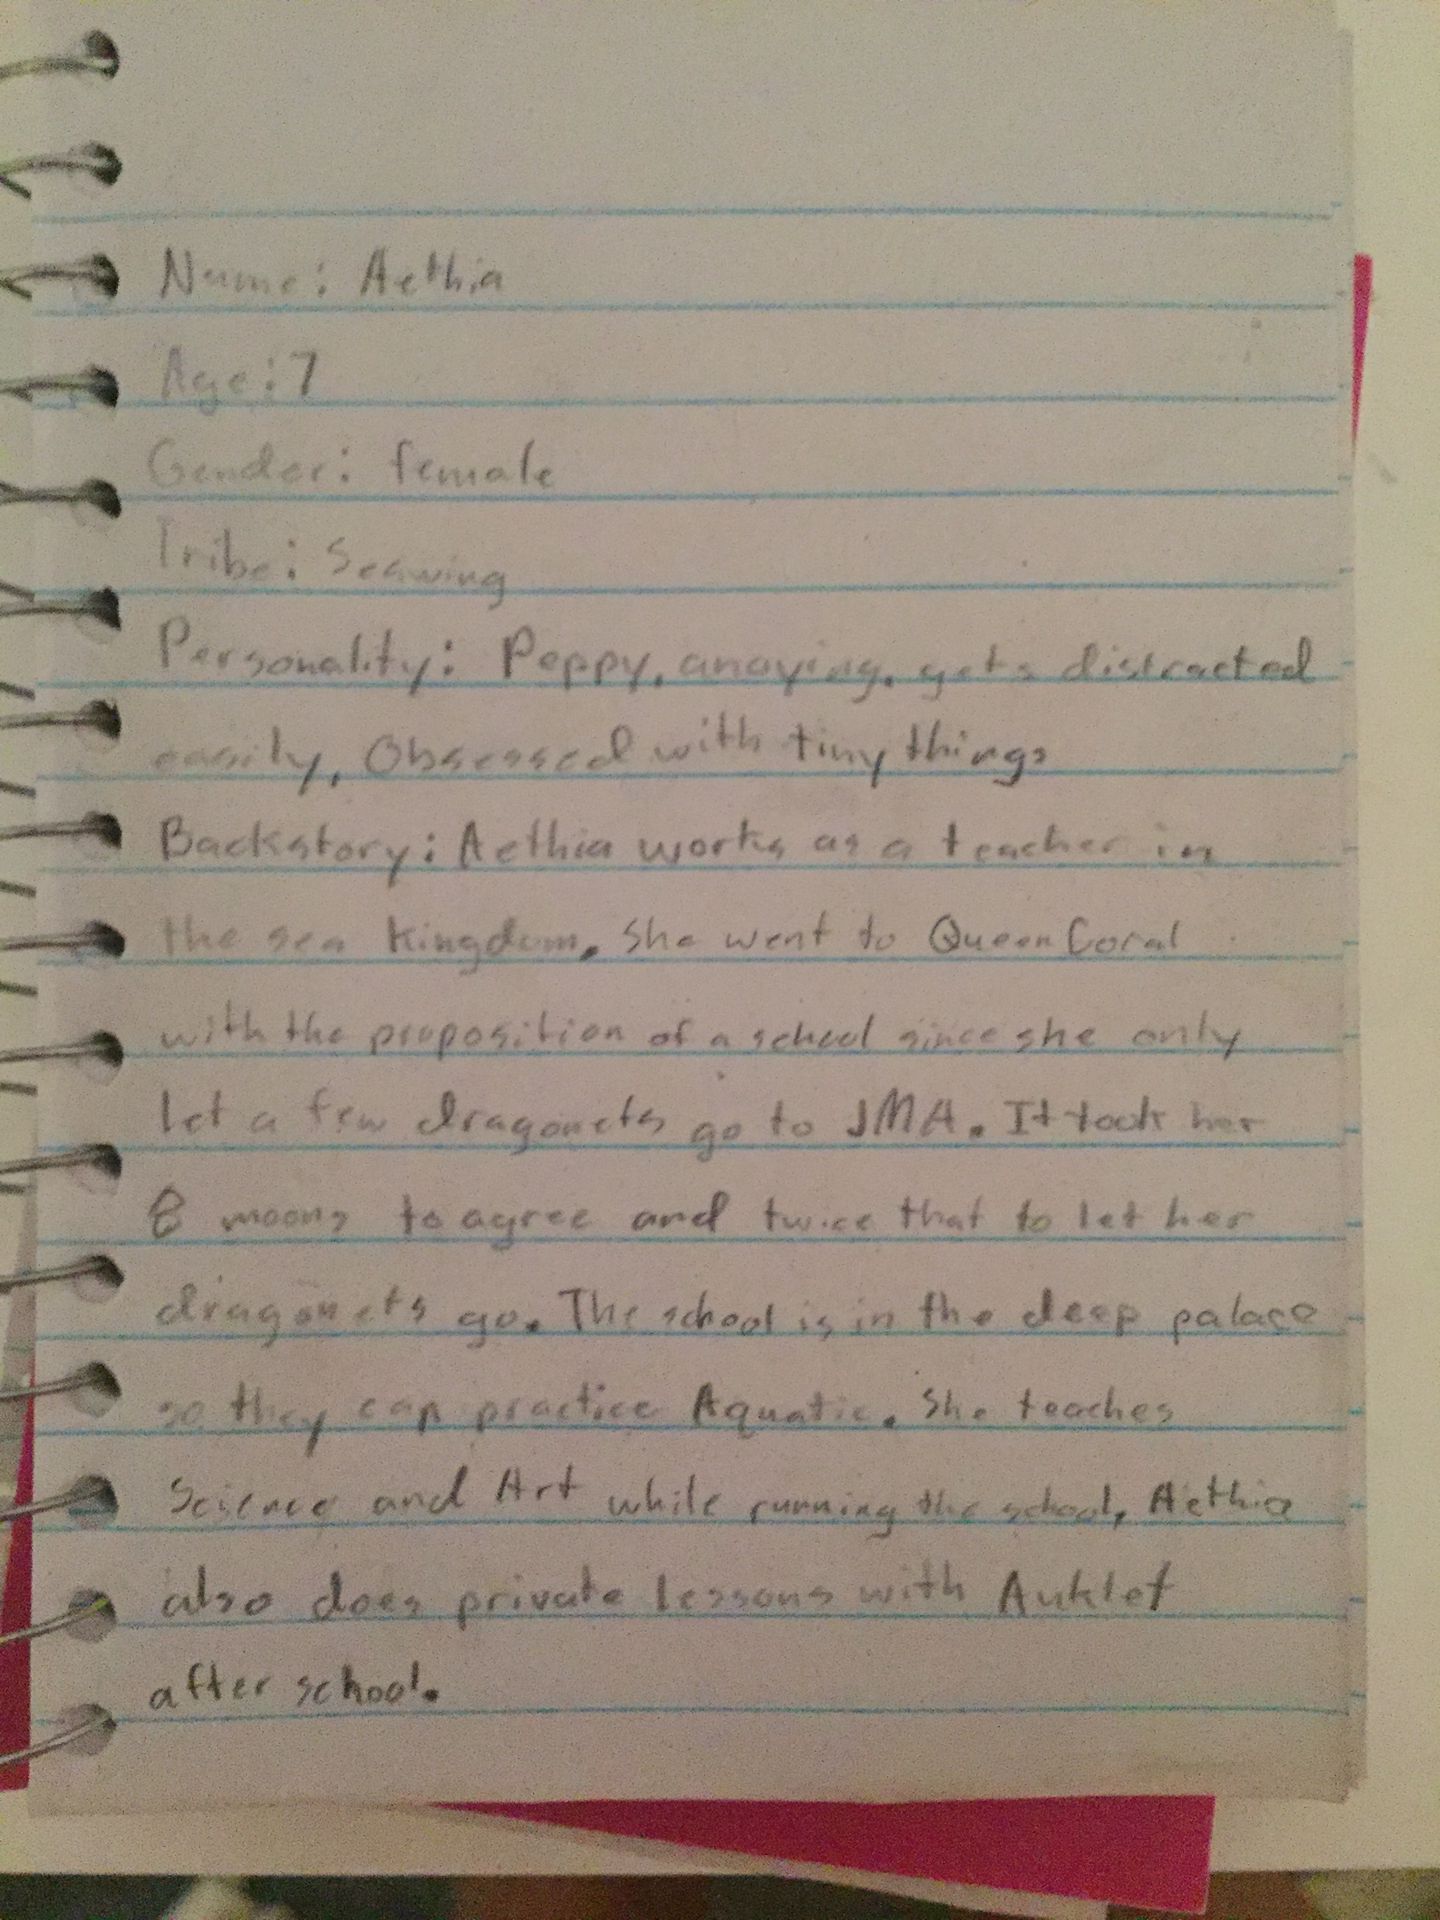 Name: Aethia
Age: 7
Gender: female
Tribe: Seawing
Personality: Peppy, anoying, gets distracted
easily, Obsessed with tiny things
Backstory: Aethia works as a teacher in
the sea kingdom. She went to Queen Coral
with the proposition of a school since she only
let a few dragonets go to JMA. It took her
8 moons to agree and twice that to let her
dragonets go. The school is in the deep palace
so they can practice Aquatic. She teaches
Science and Art while running the school, Aethia
also does private lessons with Auklet
after school.